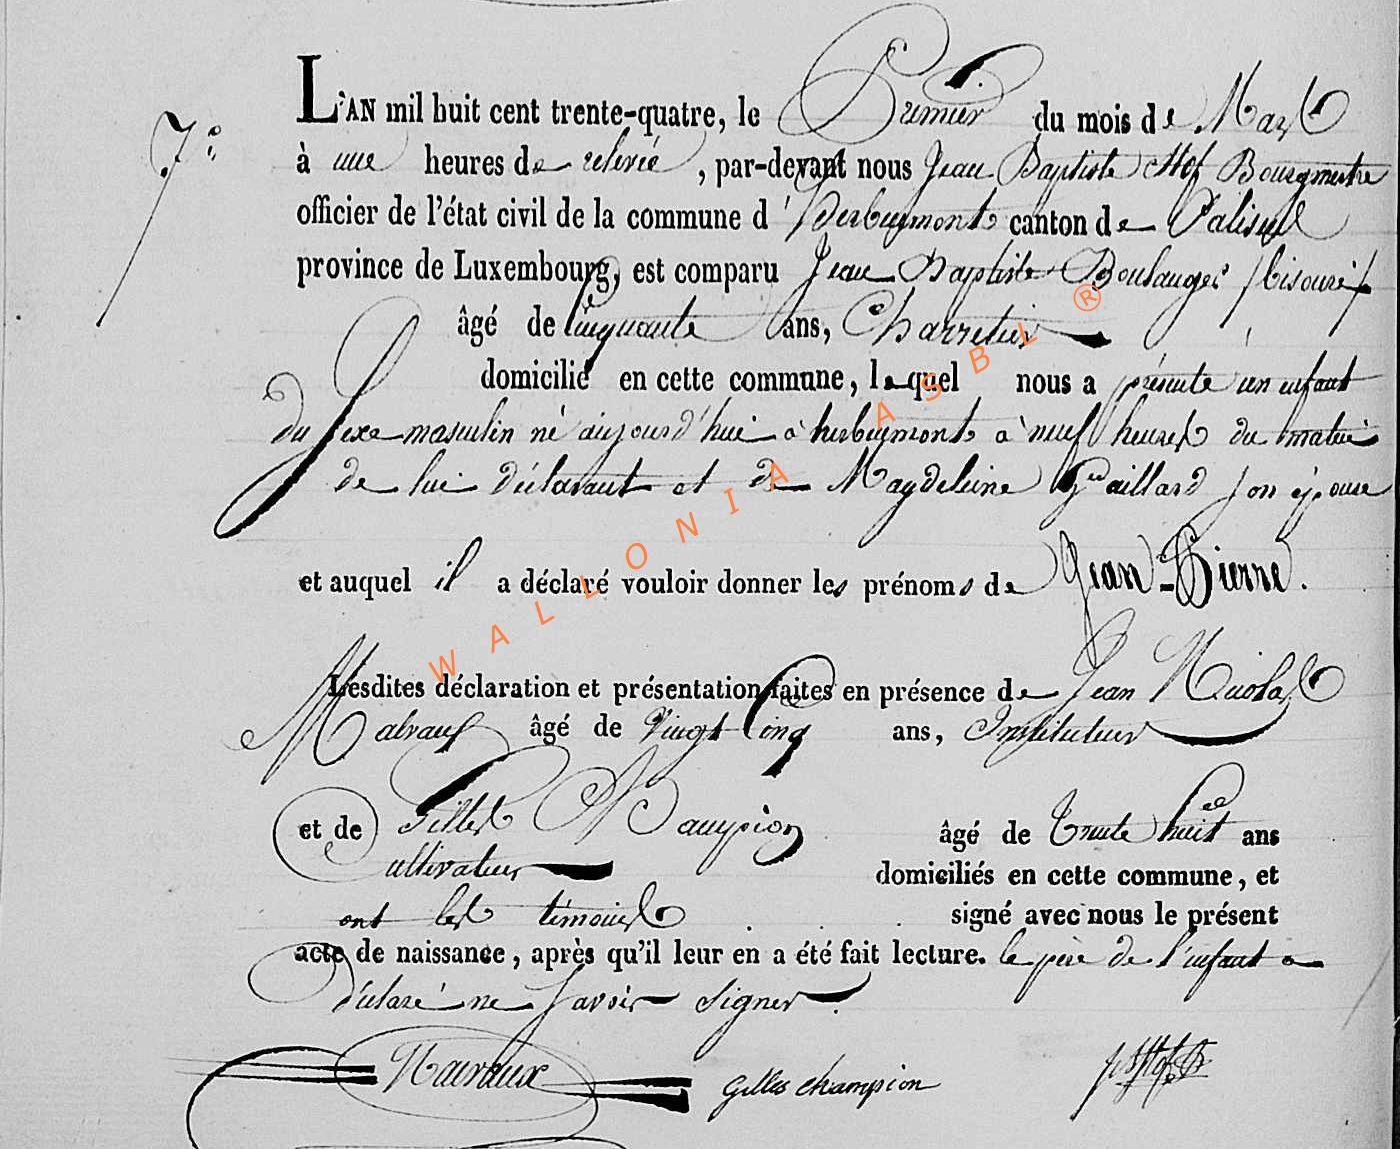 7e.
L'AN mil huit cent trente-quatre, le Premier du mois de Mars
à une heures de relevée, par-devant nous Jean Baptiste Hof Bourgmestre
officier de l'état civil de la commune d'herbeumont canton de Paliseul
province de Luxembourg, est comparu Jean Baptiste Boulanger
âgé de Cinquante ans, Charretier
domicilié en cette commune, lequel nous a présenté un enfant
du sexe masculin né aujourd'hui à herbeumont à neuf heures du matin
de lui déclarant et de Magdeleine Gaillard son épouse
et auquel il a déclaré vouloir donner les prénoms de Jean-Pierre.
Lesdites déclaration et présentation faites en présence de Jean Nicolas
âgé de Vingt Cinq ans, Instituteur
et de Gilles Champion âgé de Trente huit ans
Cultivateur domiciliés en cette commune, et
ont les témoins signé avec nous le présent
acte de naissance, après qu'il leur en a été fait lecture. le père de l'enfant a
déclaré ne savoir signer.
Gilles Champion
WALLONIA ASBL ®